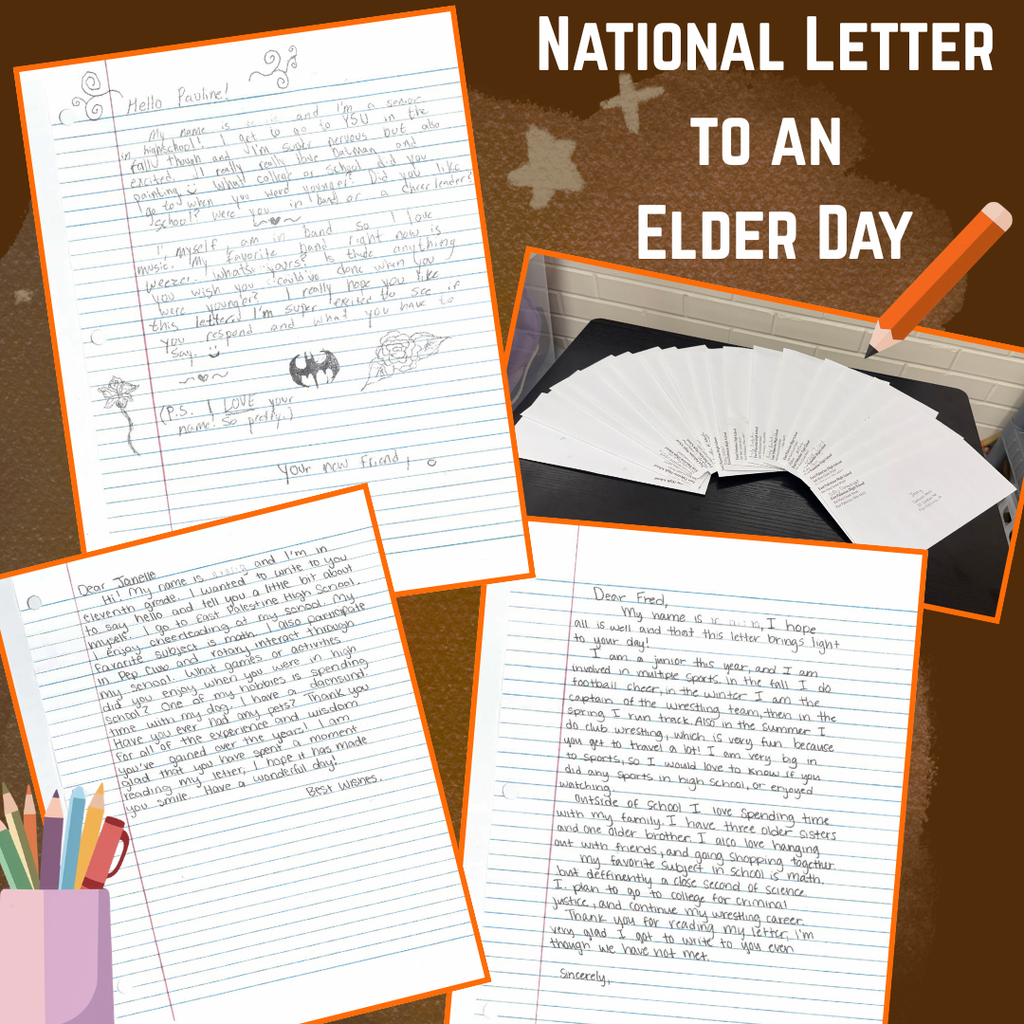 National Letter
to an
Elder Day
Hello Pauline!
My name is and I'm a senior
in highschool! I get to go to YSU in the
fall though and I'm super nervous but also
excited. I really really love Batman and
painting. What college or school did you
go to when you were younger? Did you like
school? Were you in band or a cheerleader?
I, myself, am in band so I love
music. My favorite band right now is
Weezer. What's yours? Is there anything
you wish you could've done when you
were younger? I really hope you like
this letter! I'm super excited to see if
you respond and what you have to
say. :)
(P.S. I LOVE your
name! So pretty.)
Your new friend,
East Palestine High School
Dear Janelle
Hi! My name is and I'm in
eleventh grade. I wanted to write to you
to say hello and tell you a little bit about
myself. I go to East Palestine High School.
I enjoy cheerleading at my school. My
favorite subject is math. I also participate
in Pep Club and rotary interact through
my school. What games or activities
did you enjoy when you were in high
school? One of my hobbies is spending
time with my dog. I have a dachsund.
Have you ever had any pets? Thank you
for all of the experience and wisdom
you've gained over the year! I am
glad that you have spent a moment
reading my letter, I hope it has made
you smile. Have a wonderful day!
Best Wishes,
Dear Fred,
My name is , I hope
all is well and that this letter brings light
to your day!
I am a junior this year, and I am
involved in multiple sports. In the fall I do
football cheer, in the winter I am the
captain of the wrestling team, then in the
spring I run track. Also in the summer I
do club wrestling, which is very fun because
you get to travel a lot! I am very big in
to sports, so I would love to know if you
did any sports in high school, or enjoyed
watching.
Outside of school I love spending time
with my family. I have three older sisters
and one older brother. I also love hanging
out with friends, and going shopping together.
My favorite subject in school is math,
but deffinently a close second of science.
I plan to go to college for criminal
justice, and continue my wrestling career.
Thank you for reading my letter, i'm
very glad I got to write to you even
though we have not met.
Sincerely,